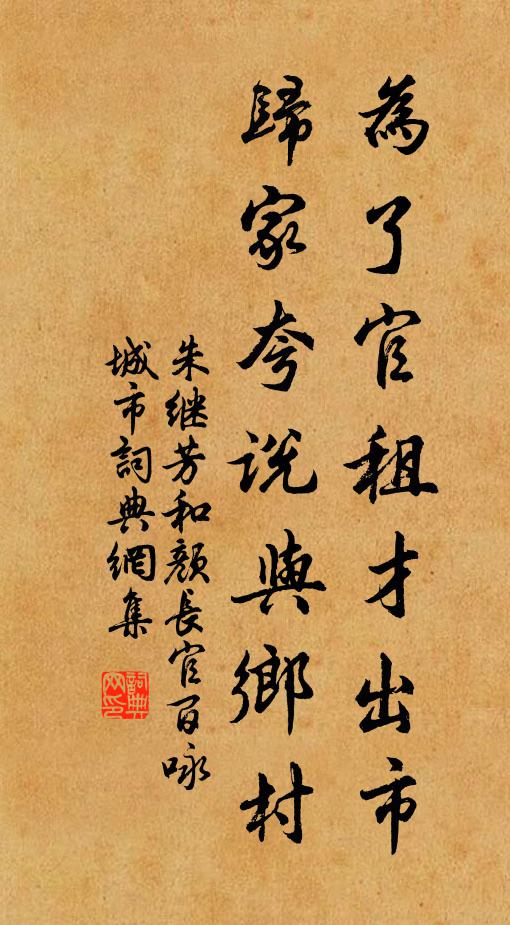 為了官租才出市
歸家夸説與鄉村
朱继芳和顔長官百咏
城市詞典網集
詞典網印